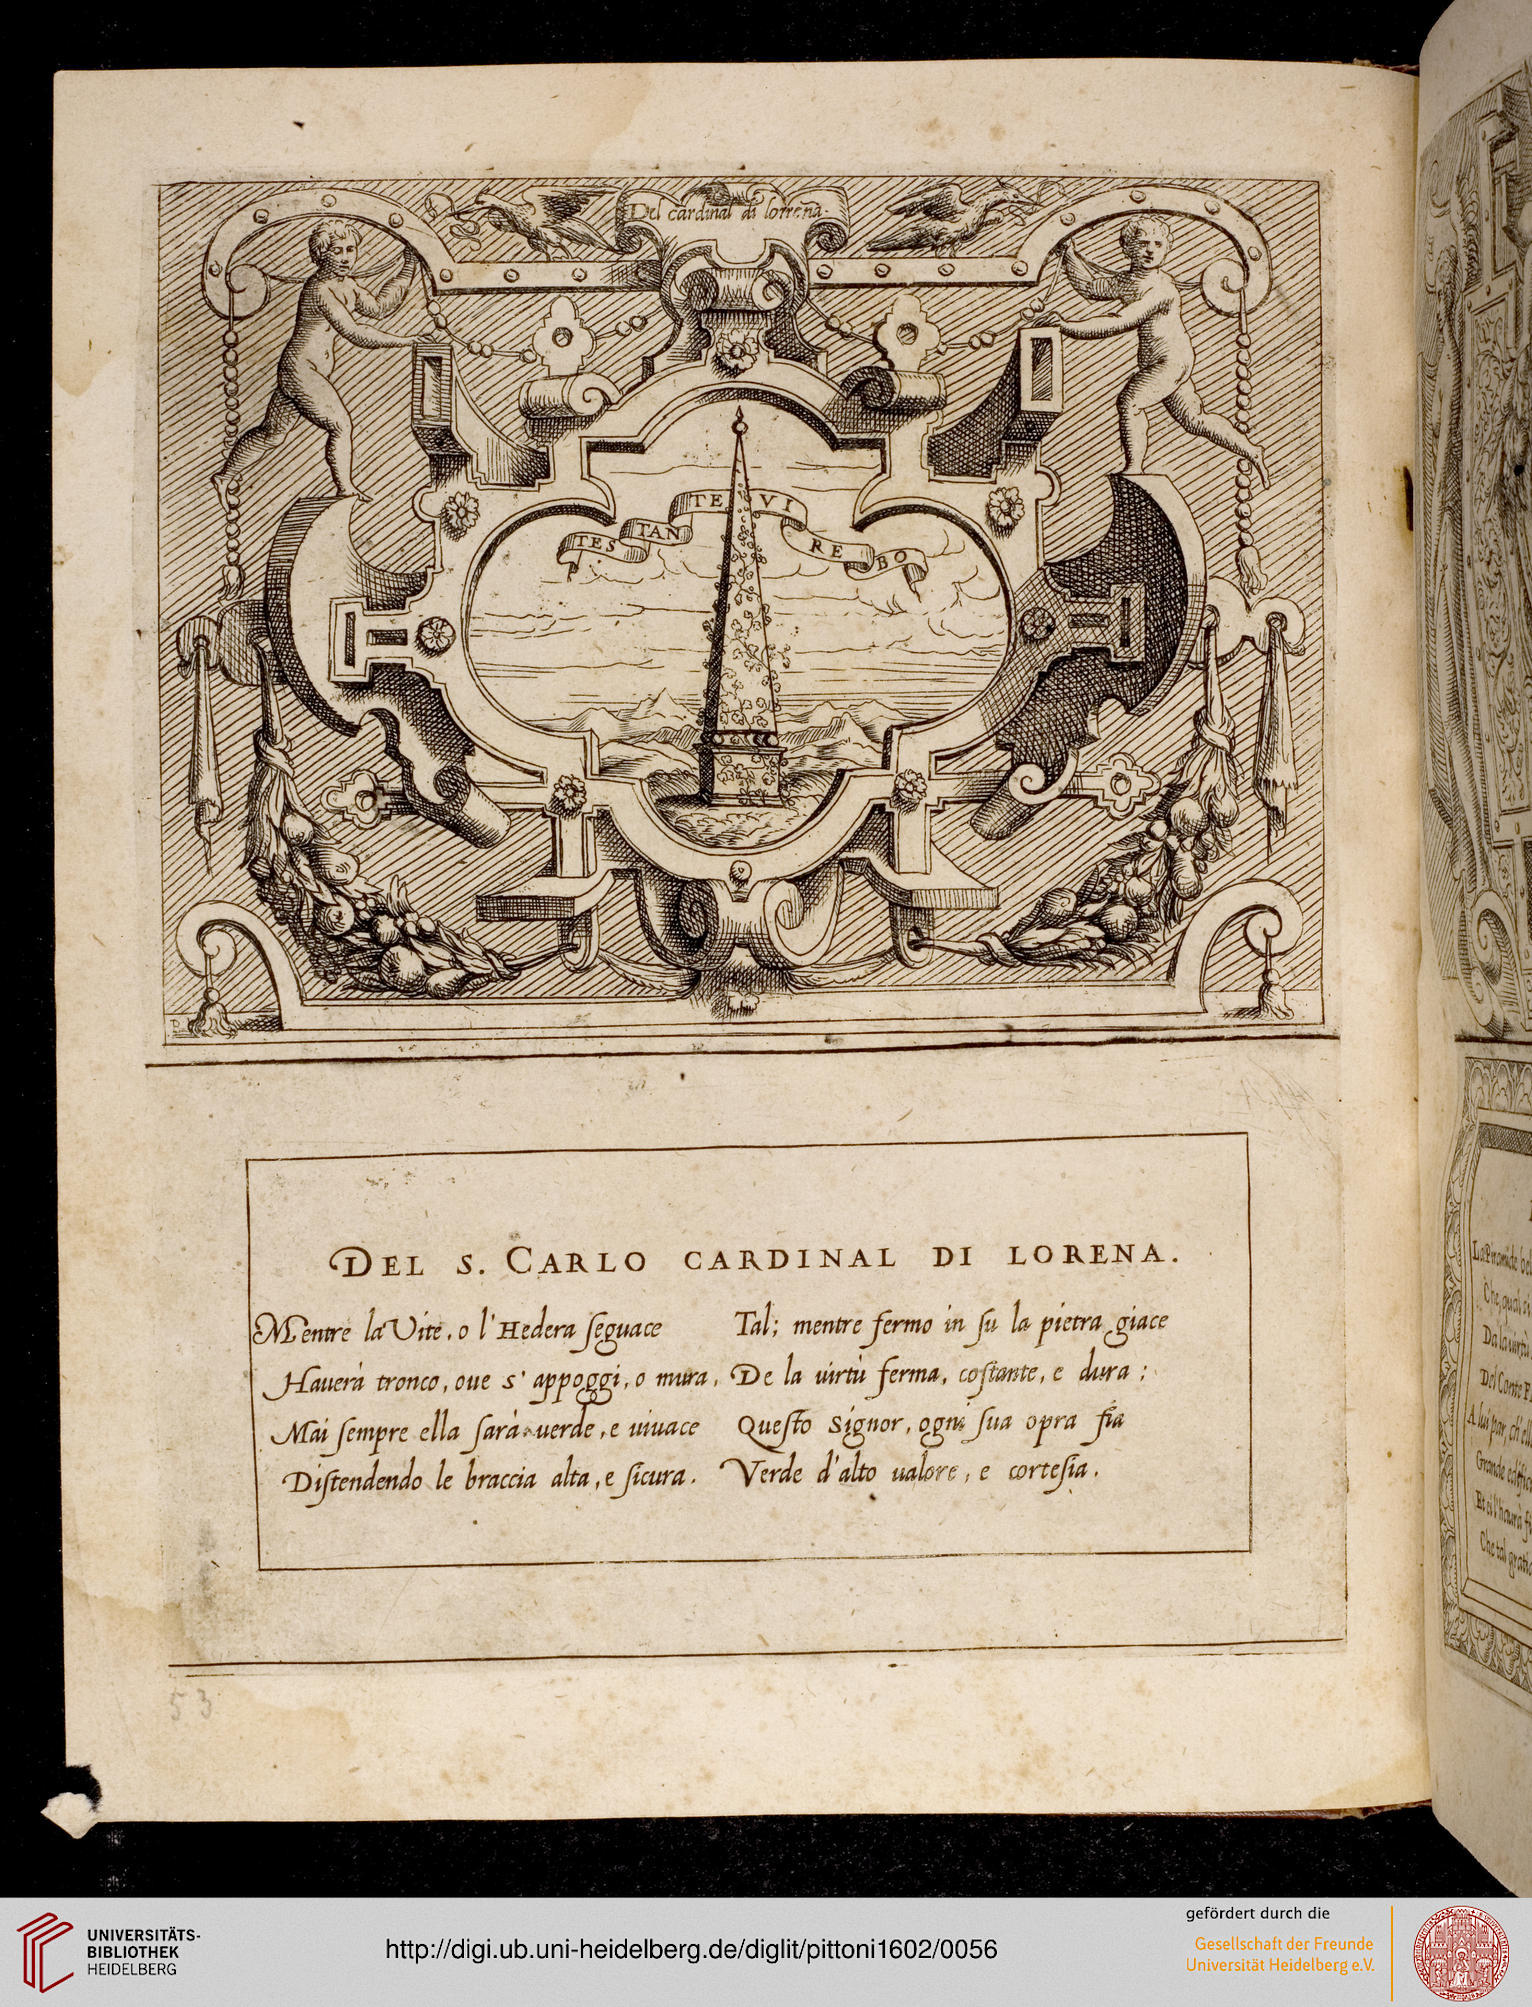 Del cardinal di lorrena.
TES TAN TE VI RE BO
DEL S. CARLO CARDINAL DI LORENA.
Mentre la Vite, o l'Hedera seguace
Hauerà tronco, oue s'appoggi, o mura,
Mai sempre ella sarà uerde, e uiuace
Distendendo le braccia alta, e sicura.
Tal; mentre fermo in su la pietra giace
De la uirtù ferma, costante, e dura;
Questo Signor, ogni sua opra fia
Verde d'alto ualore, e cortesia.
53
La Piramide
Che, qual
Da la uirtù
Del Conte
A lui par, ch'
Grande
Et ei l'haurà
Che tal
UNIVERSITÄTS-
BIBLIOTHEK
HEIDELBERG
http://digi.ub.uni-heidelberg.de/diglit/pittoni1602/0056
gefördert durch die
Gesellschaft der Freunde
Universität Heidelberg e.V.